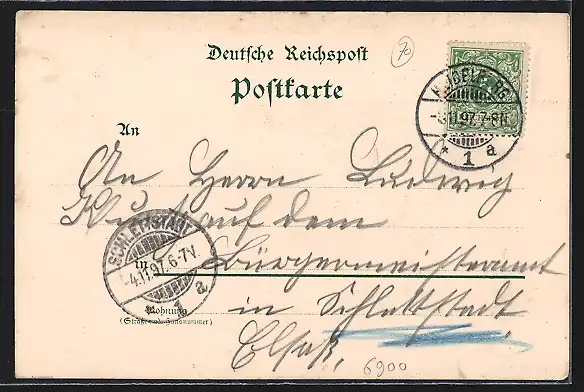 Deutsche Reichspost
70
Postkarte
HEIDELBERG
-3.11.97. 7-8N.
* 1 a
An
An Herrn Ludwig
auf dem
SCHLETTSTADT
-4.11.97. 6-7V.
* 1 a
in
Bürgermeisteramt
in Schlettstadt
Wohnung
(Straße und Hausnummer)
Elsaß,
6900